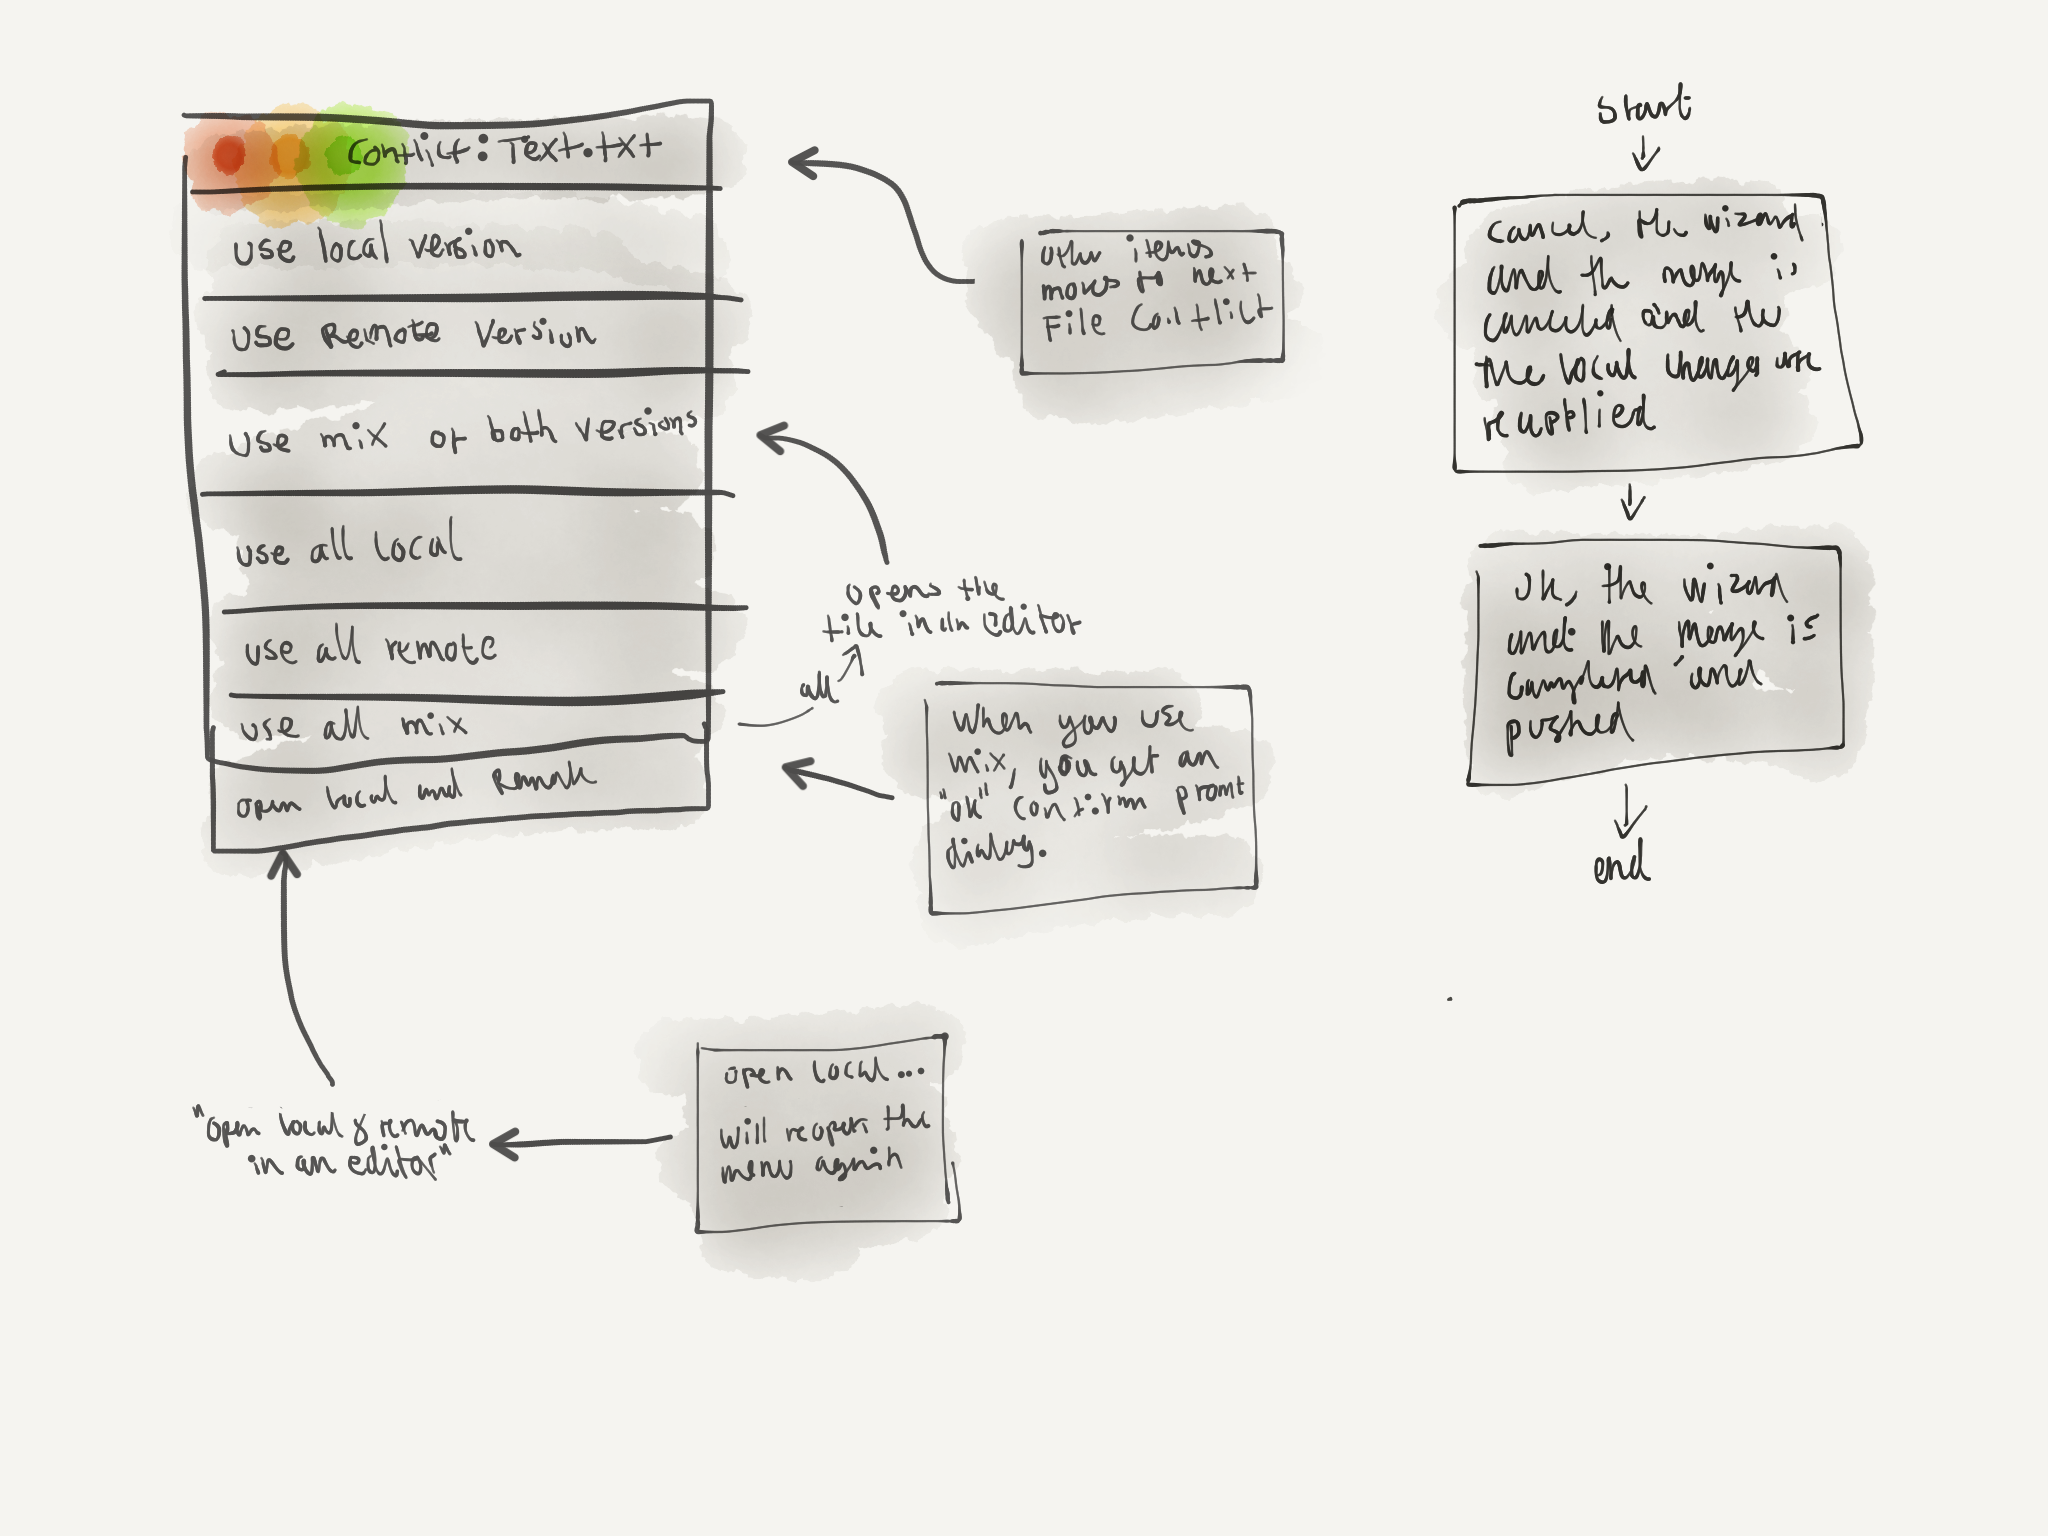 Conflict: Text.txt
use local version
use Remote version
use mix of both versions
use all local
use all remote
use all mix
open local and Remote
other items
moves to next
File Conflict
opens the
file in an editor
all
When you use
mix, you get an
"ok" confirm promt
dialog.
"open local & remote
in an editor"
open local...
will reopen the
menu again
start
cancel, the wizard
and the merge is
canceled and the
the local changes are
reapplied
ok, the wizard
and the merge is
completed and
pushed
end